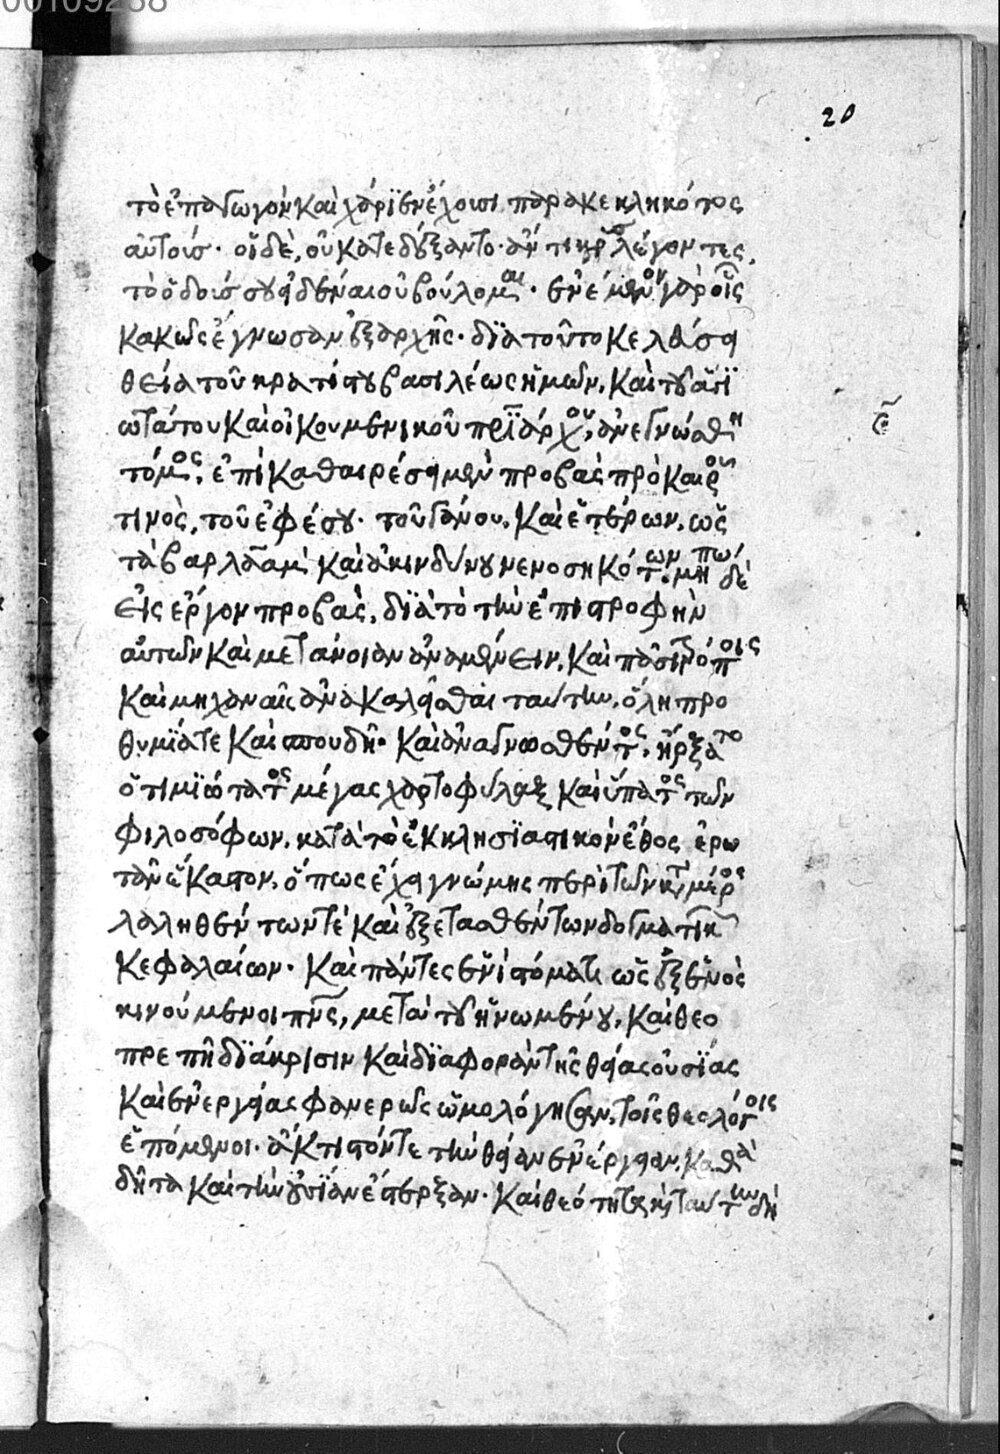 00109288
20
τὸ ἐπαγωγὸν καὶ χάριεν ἔχουσι παρακεκληκότος
αὐτούς. οἱ δὲ, οὐ κατεδέξαντο. ἀντικρὺς λέγοντες,
τὸ ὁδοὺς σου εἰδέναι οὐ βούλομαι. ἐν ἐμὲν γὰρ οἷς
κακῶς ἔγνωσαν ἐξ ἀρχῆς. διὰ τοῦτο κελεύσει
θεία τοῦ κρατίστου βασιλέως ἡμῶν, καὶ τοῦ ἁγι
ωτάτου καὶ οἰκουμενικοῦ πριάρχου, ἀνεγνώσθη
τόμος, ἐπὶ καθαιρέσει μὲν προβὰς πρὸ καιροῦ
τινὸς, τοῦ ἐφέσου. τοῦ γάνου. καὶ ἑτέρων, ὡς
τὰ βαρλαὰμ καὶ ἀκινδύνου νενοσηκότων. μήπω δὲ
εἰς ἔργον προβὰς, διὰ τὸ τὴν ἐπιστροφὴν
αὐτῶν καὶ μετάνοιαν ἀναμένειν. καὶ πᾶσι τρόποις
καὶ μηχαναῖς ἀνακαλεῖσθαι ταύτην, ὅλῃ προ
θυμίᾳ τε καὶ σπουδῇ. καὶ ἀναγνωσθέντος, ἤρξατο
ὁ τιμιώτατος μέγας χαρτοφύλαξ καὶ ὕπατος τῶν
φιλοσόφων, κατὰ τὸ ἐκκλησϊαστικὸν ἔθος ἐρω
τᾶν ἕκαστον, ὅπως ἔχει γνώμης περὶ τῶν κατὰ μέρος
λαληθέντων τὲ καὶ ἐξετασθέντων δογματικῶν
κεφαλαίων. καὶ πάντες ἐνὶ στόματι ὡς ἐξ ἑνὸς
κινούμενοι πνς, μετὰ τοῦ ἡνωμένου, καὶ θεο
πρεπῆ διάκρισιν καὶ διαφορὰν τῆς θείας οὐσίας
καὶ ἐνεργείας φανερῶς ὡμολόγησαν, τοῖς θεολόγοις
ἑπόμενοι. ἄκτιστόν τε τὴν θείαν ἐνέργειαν, καθὰ
δῆτα καὶ τὴν οὐσίαν ἔστερξαν. καὶ θεότητα καὶ ταύτην δὴ